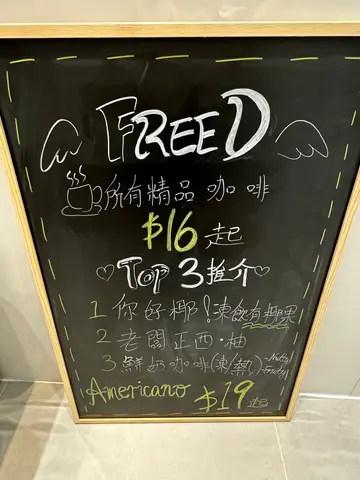 FREED
所有精品咖啡
$16起
Top 3推介
1 你好椰！凍飲有椰果
2 老闆正西·柚
3 鮮奶咖啡(凍/熱)-Nutty -Fruity
Americano $19起